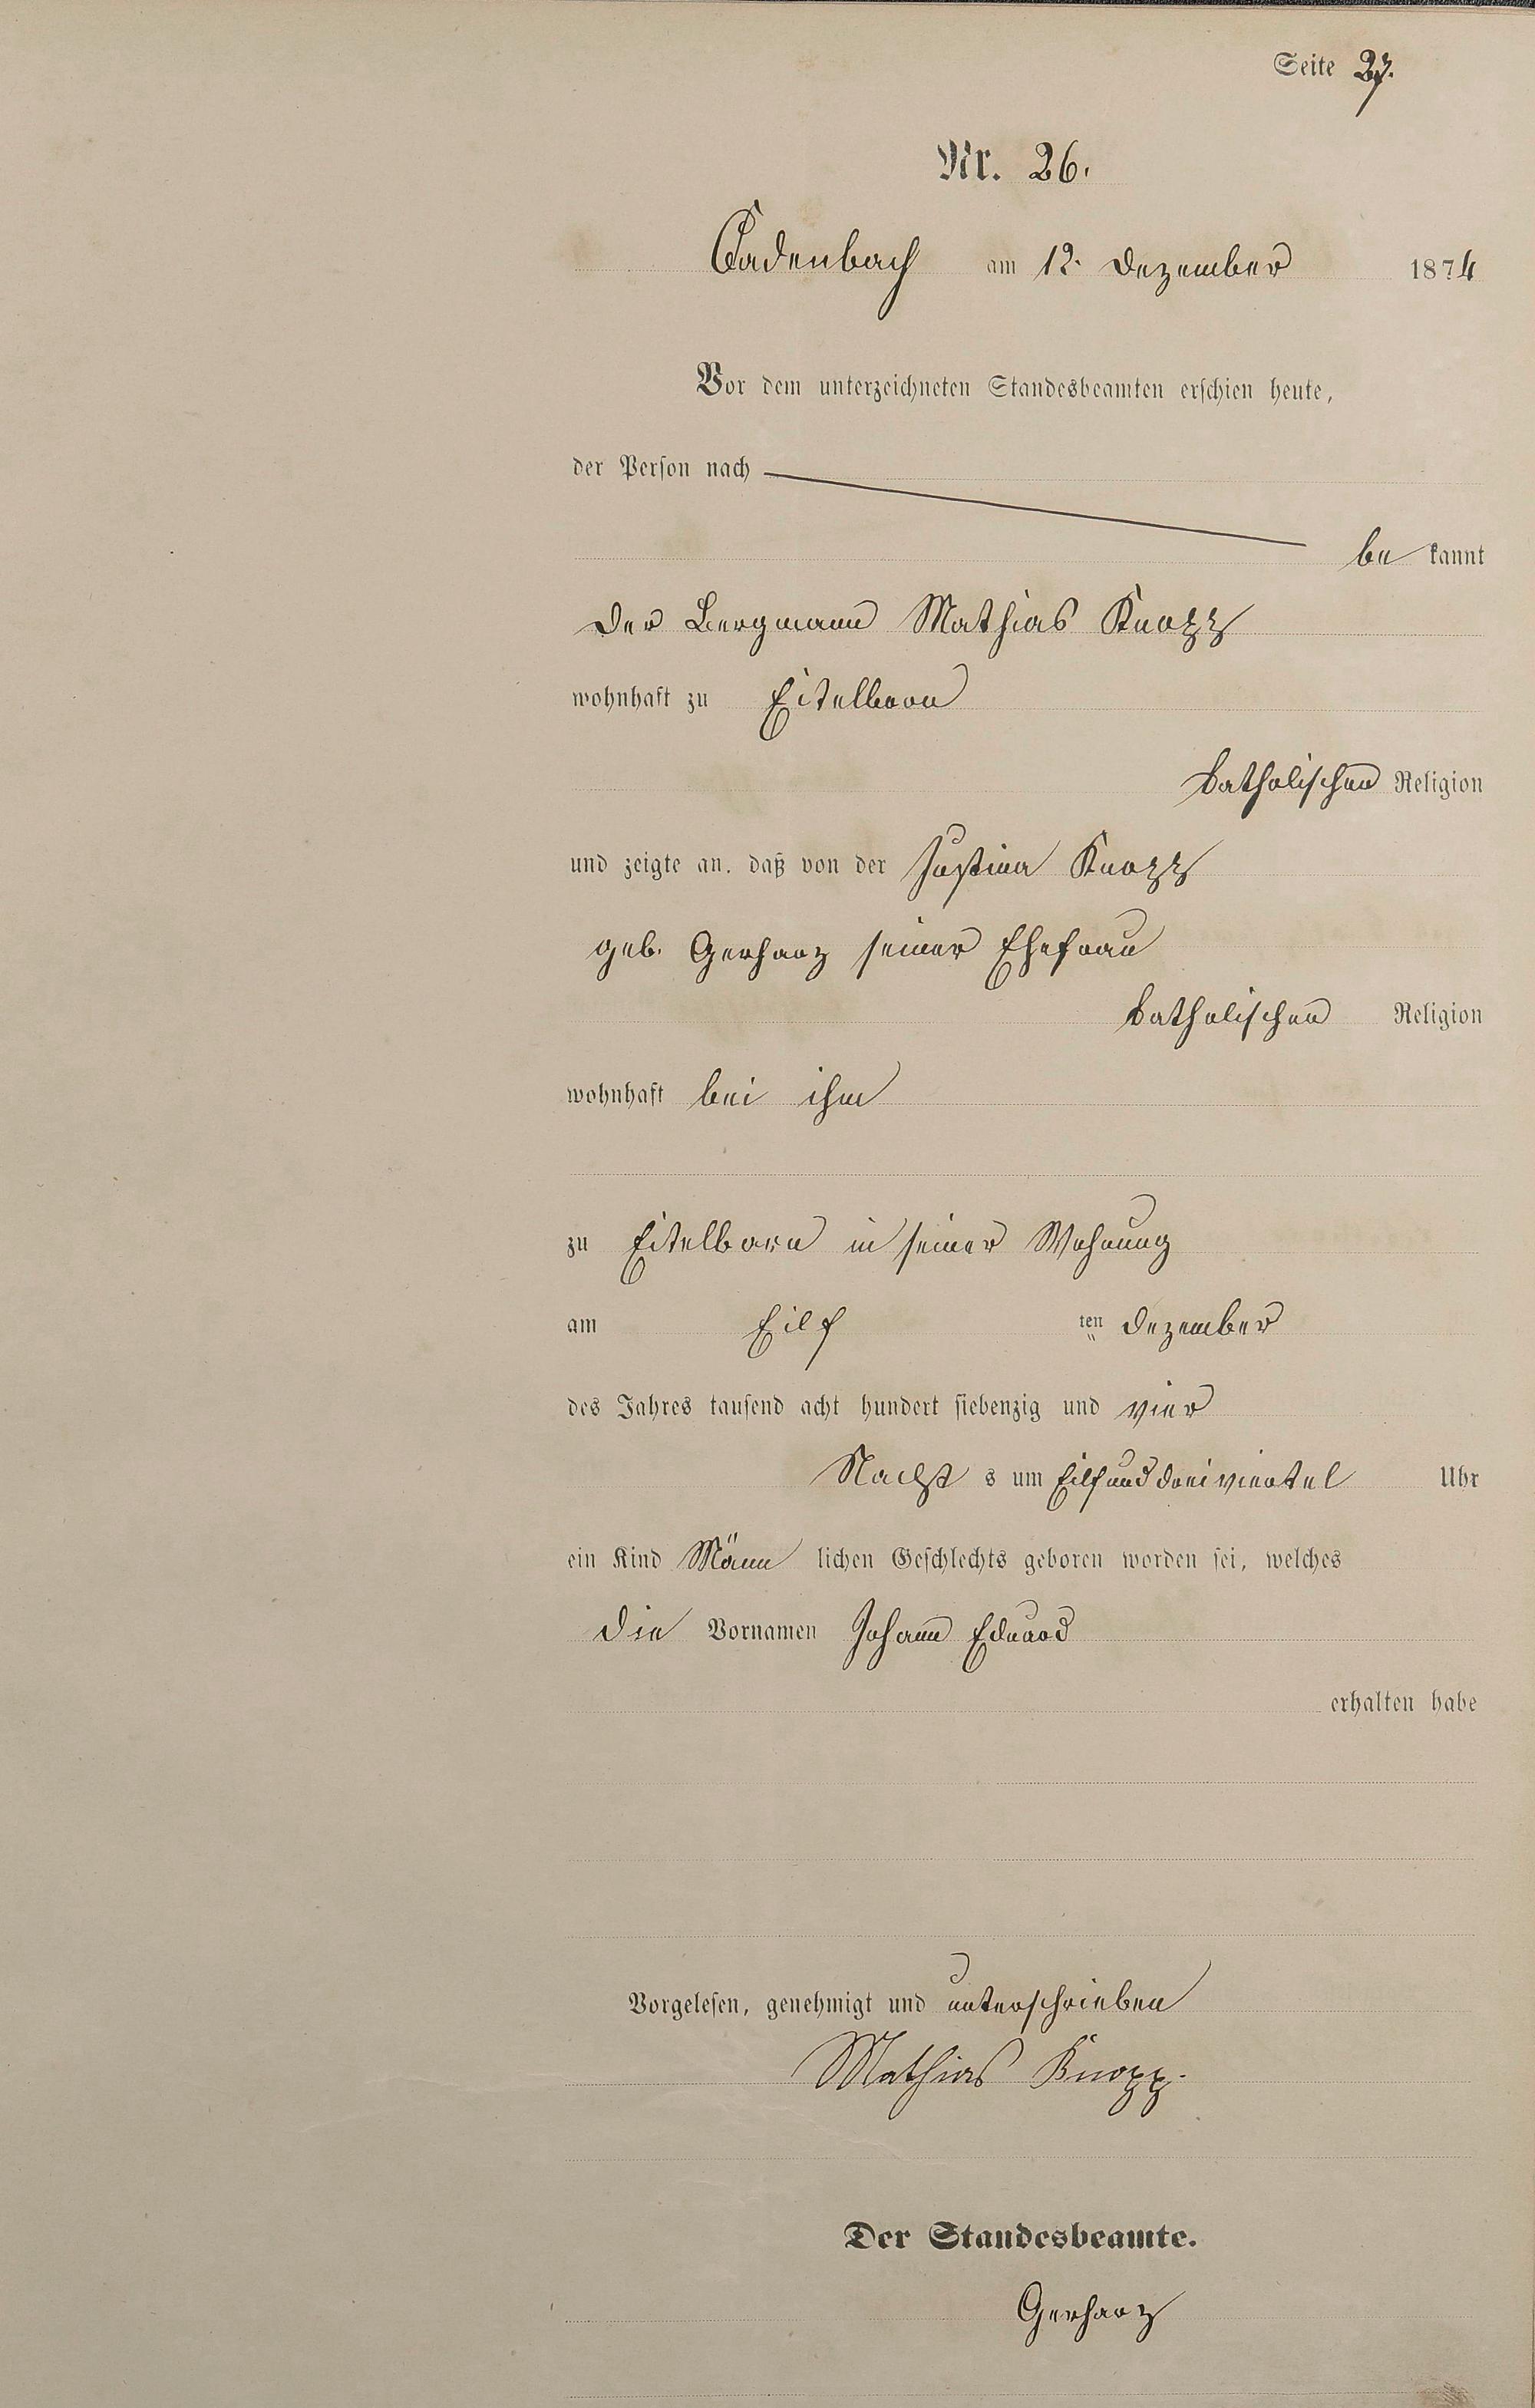 Seite 27.
Nr. 26.
Cadenbach am 12. Dezember 1874
Vor dem unterzeichneten Standesbeamten erschien heute,
der Person nach
be kannt
der Bergmann Mathias Knopp
wohnhaft zu Eitelborn
katholischer Religion
und zeigte an, daß von der Justina Knopp
geb. Gerharz seiner Ehefrau
katholischer Religion
wohnhaft bei ihm
zu Eitelborn in seiner Wohnung
am Eilf ten Dezember
des Jahres tausend acht hundert siebenzig und vier
Nacht s um Eilf und dreiviertel Uhr
ein Kind Männ lichen Geschlechts geboren worden sei, welches
die Vornamen Johann Eduard
erhalten habe
Vorgelesen, genehmigt und unterschrieben
Mathias Knopp.
Der Standesbeamte.
Gerharz